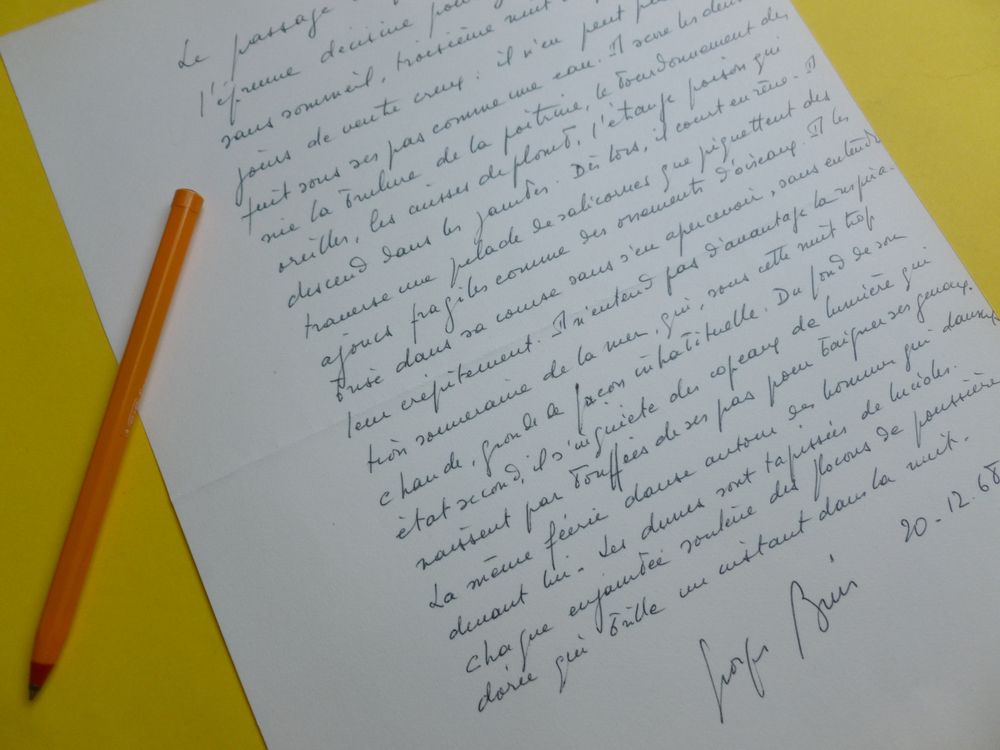 Le passage
l'épreuve décisive pour
sans sommeil, troisième nuit
jours de ventre creux : il n'en peut
fuit sous ses pas comme une eau. Il serre les dents
nie la brulure de la poitrine, le bourdonnement des
oreilles, les cuisses de plomb, l'étrange poison qui
descend dans les jambes. Dès lors, il court en rêve. Il
traverse une pelade de salicornes que piquettent des
ajoncs fragiles comme des ossements d'oiseaux. Il les
brise dans sa course sans s'en apercevoir, sans entendre
leur crépitement. Il n'entend pas d'avantage la respira-
tion souveraine de la mer, qui, sous cette nuit trop
chaude, gronde de façon inhabituelle. Du fond de son
état second, il s'inquiète des copeaux de lumière qui
naissent par bouffées de ses pas pour baigner ses genoux.
La même féérie danse autour des hommes qui dansent
devant lui. Les dunes sont tapissées de lucioles.
Chaque enjambée soulève des flocons de poussière
dorée qui brille un instant dans la nuit.
20-12.68